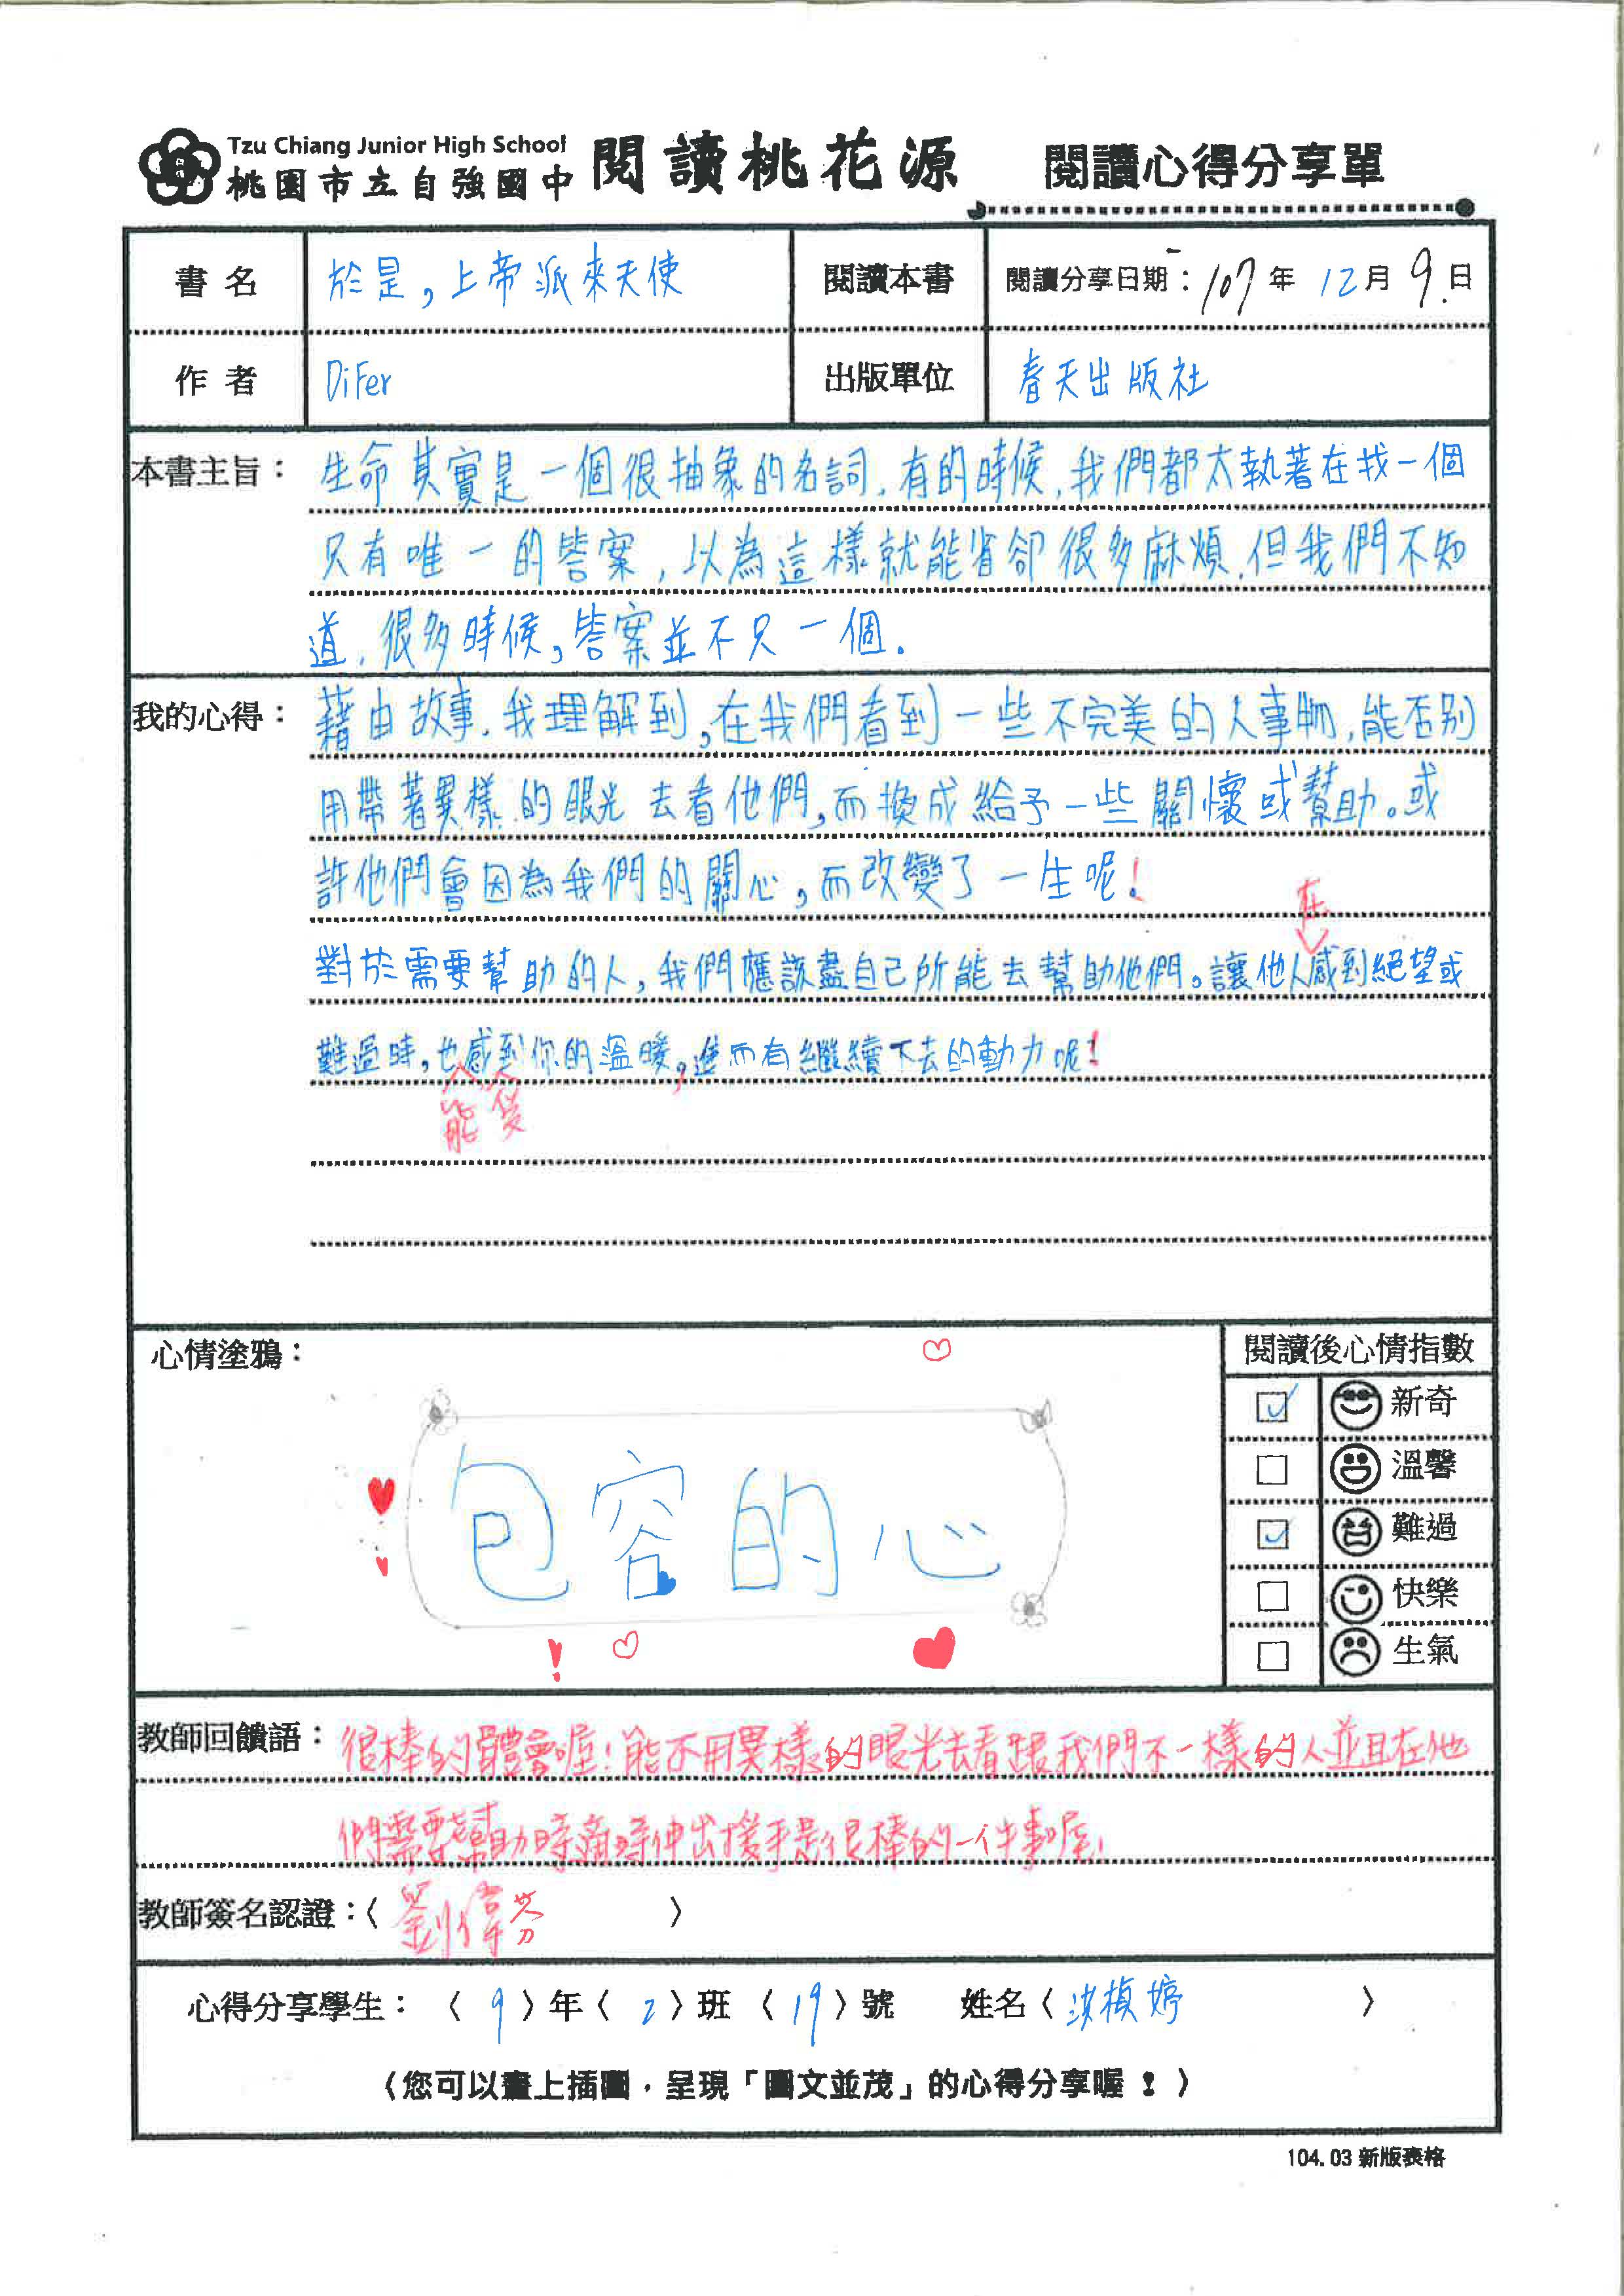 Tzu Chiang Junior High School
桃園市立自強國中 閱讀桃花源 閱讀心得分享單
書名 於是，上帝派來天使 閱讀本書 閱讀分享日期：107年12月9日
作者 DiFer 出版單位 春天出版社
本書主旨：生命其實是一個很抽象的名詞，有的時候，我們都太執著在找一個
只有唯一的答案，以為這樣就能省卻很多麻煩，但我們不知
道，很多時候，答案並不只一個。
我的心得：藉由故事，我理解到，在我們看到一些不完美的人事物，能否別
用帶著異樣的眼光去看他們，而換成給予一些關懷或幫助。或
許他們會因為我們的關心，而改變了一生呢！
在
對於需要幫助的人，我們應該盡自己所能去幫助他們。讓他人感到絕望或
難過時，也感到你的溫暖，進而有繼續下去的動力呢！
能 受
心情塗鴉：
包容的心
閱讀後心情指數
新奇
溫馨
難過
快樂
生氣
教師回饋語：很棒的體會喔！能不用異樣的眼光去看跟我們不一樣的人並且在他
們需要幫助時適時伸出援手是很棒的一件事喔！
教師簽名認證：〈劉偉芬〉
心得分享學生：〈9〉年〈2〉班〈19〉號 姓名〈楨婷〉
〈您可以畫上插圖，呈現「圖文並茂」的心得分享喔！〉
104.03 新版表格